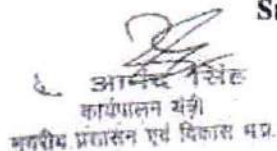 St
आनंद सिंह
कार्यपालन यंत्री
नगरीय प्रशासन एवं विकास म.प्र.